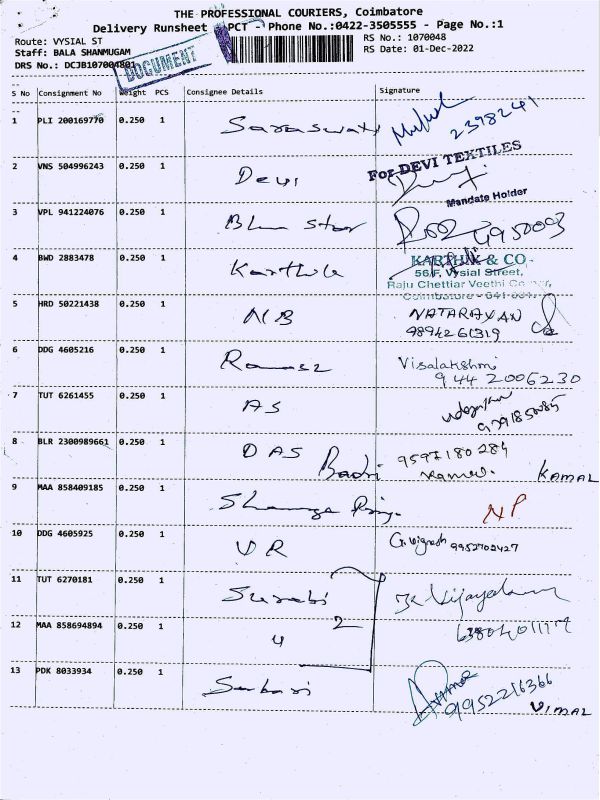 THE PROFESSIONAL COURIERS, Coimbatore
Delivery Runsheet PCT - Phone No.:0422-3505555 - Page No.:1
Route: VYSIAL ST
RS No.: 1070048
Staff: BALA SHANMUGAM
RS Date: 01-Dec-2022
DRS No.: DCJB107004801
DOCUMENT
S No Consignment No Weight PCS Consignee Details Signature
1 PLI 200169770 0.250 1 Saraswati 2398241
2 VNS 504996243 0.250 1 Devi For DEVI TEXTILES
Mandate Holder
3 VPL 941224076 0.250 1 Blue Star
4 BWD 2883478 0.250 1 Karthik KARTHIK & CO
56/F, Vysial Street,
Raju Chettiar Veethi
Coimbatore - 641 001
5 HRD 50221438 0.250 1 NB NATARAXAN
9894261319
6 DDG 4605216 0.250 1 Visalakshmi
944 2006230
7 TUT 6261455 0.250 1 AS
8 BLR 2300989661 0.250 1 DAS Badri 9597180284
KAMAL
9 MAA 858409185 0.250 1 NP
10 DDG 4605925 0.250 1 VR G.Vignesh 9952702427
11 TUT 6270181 0.250 1 Surabi
12 MAA 858694894 0.250 1 4 2
13 PDK 8033934 0.250 1 9952216366
VIMAL